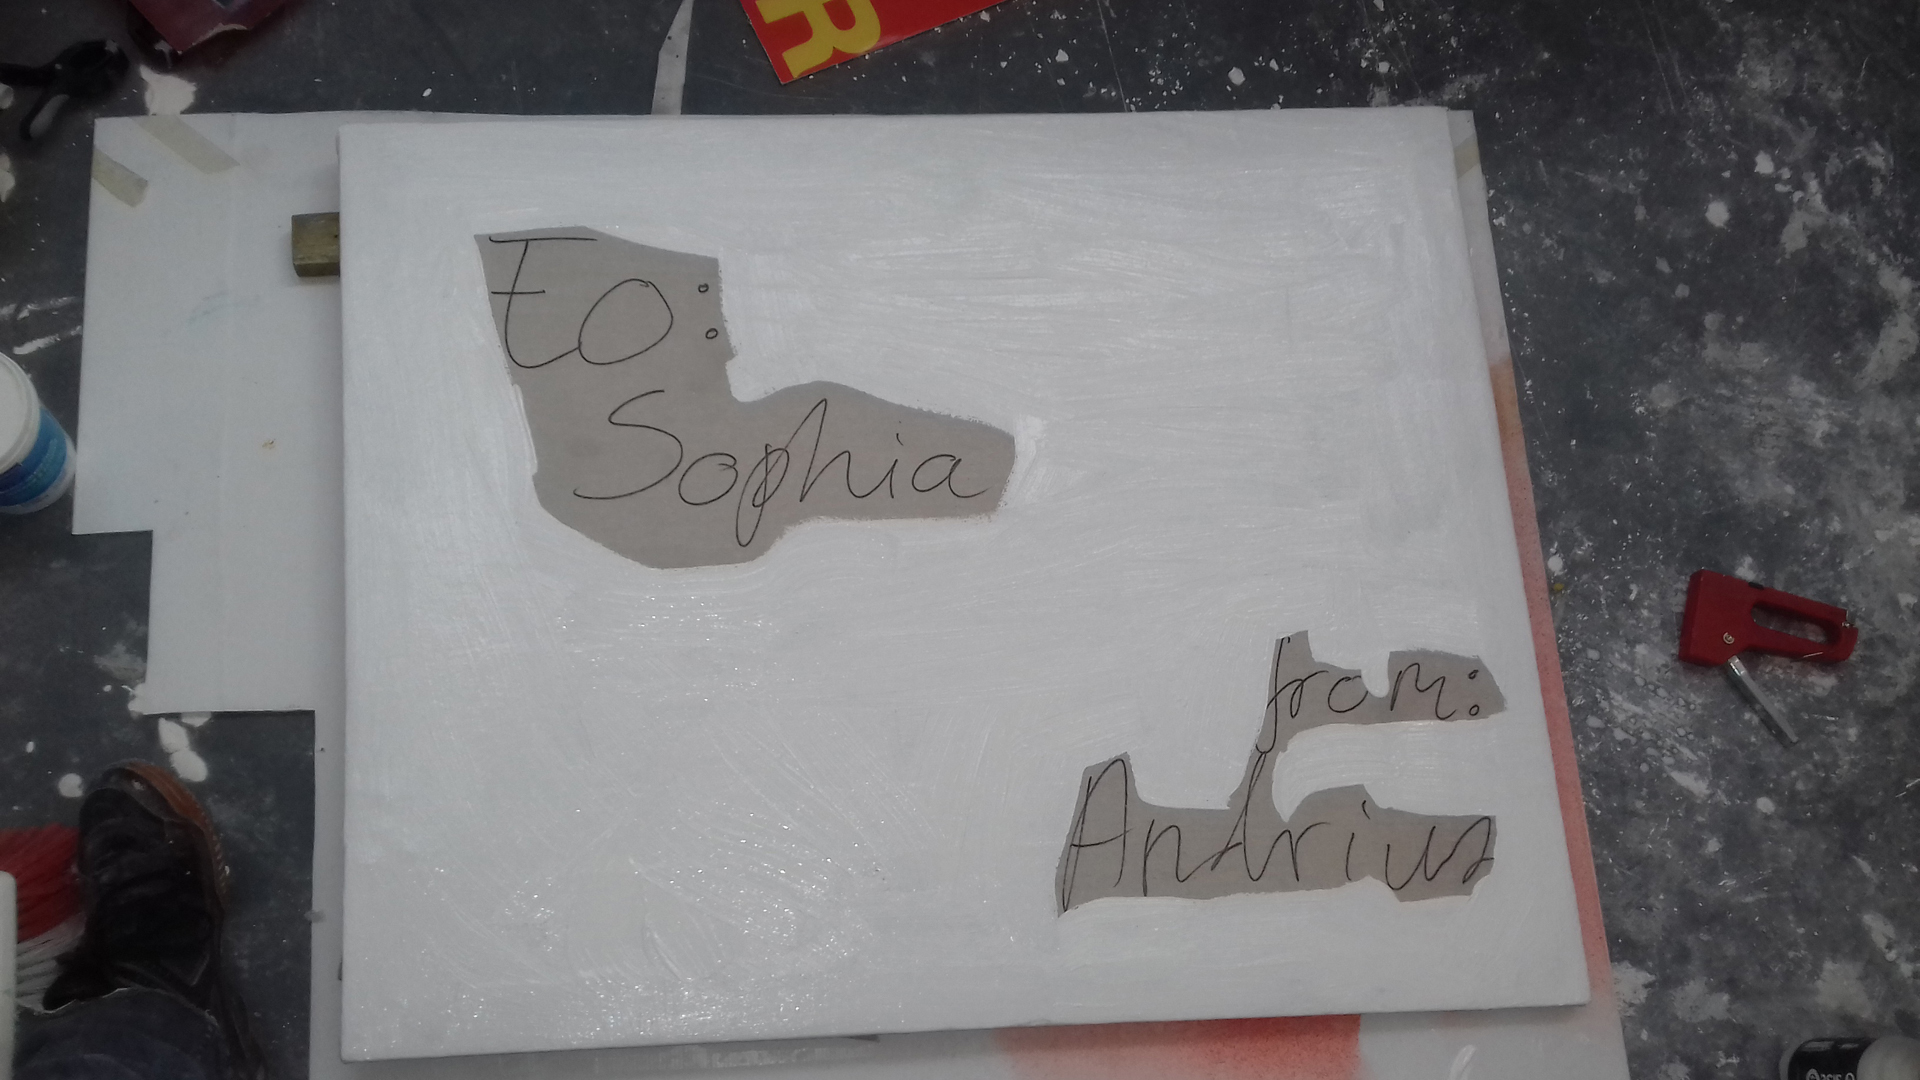 R
to:
Sophia
from:
Andrius